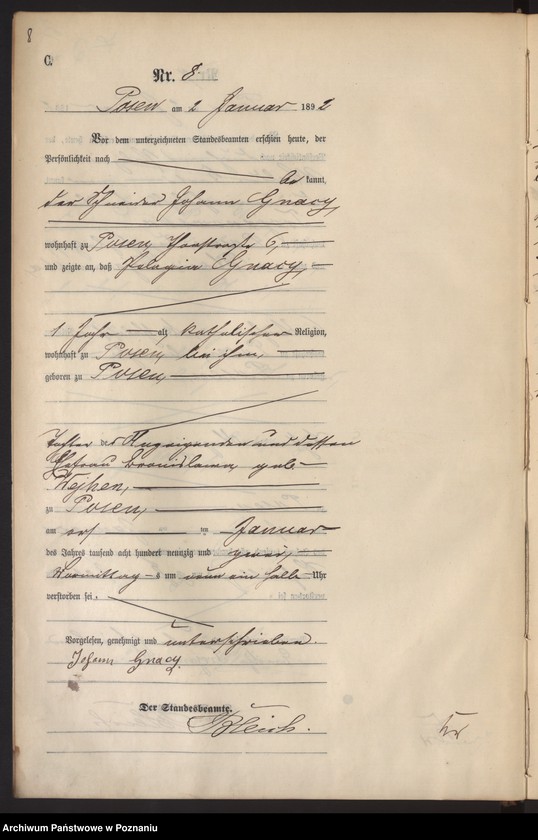 8
C.
Nr. 8.
Posen am 2 Januar 1892
Vor dem unterzeichneten Standesbeamten erschien heute, der
Persönlichkeit nach
be kannt,
der Schneider Johann Gnacy,
wohnhaft zu Posen, Thorstraße 6,
und zeigte an, daß Pelagia Gnacy,
1 Jahr alt, katholischer Religion,
wohnhaft zu Posen, bei ihm,
geboren zu Posen,
Tochter des Anzeigenden und dessen
Ehefrau Bronislawa, geb.
zu Posen,
am erst en Januar
des Jahres tausend acht hundert neunzig und zwei,
Vormittag s um neun ein halb Uhr
verstorben sei.
Vorgelesen, genehmigt und unterschrieben.
Johann Gnacy.
Der Standesbeamte.
Archiwum Państwowe w Poznaniu